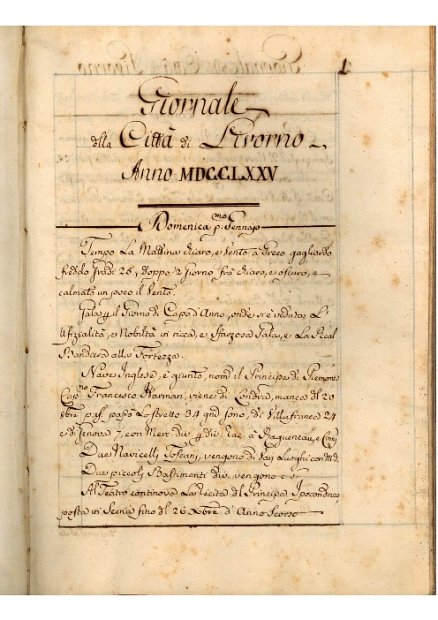 1
Giornale
della Città di Livorno
Anno MDCCLXXV
Domenica pmo Gennajo
Tempo La Mattina chiaro, e Vento à Greco gagliardo
freddo Gradi 26, doppo 2 giorno frà chiaro, e oscuro, e
calmato un poco il Vento.
Gala il Giorno di Capo d'Anno, onde si è veduta L'
Ufizialità, e Nobiltà in ricca, e sfarzosa Gala, e La Real
Bandiera alla Fortezza.
Nave Inglese, è giunta, nom. il Principe di Piemonte
Capno Francesco Harman, viene di Londra, manca dl 20
8bre pas. passò Lo stretto 34 gni sono, di Villafranca 24
e di Genova 7, con Merc. div. a Ragueneau, e
Due Navicelli Toscani, vengono di Luoghi con
Due piccoli Bastimenti div. vengono
Al Teatro continova La Recita del Principe Ipocondrico
posta in Scena fino del 26 Xbre d'Anno Scorso